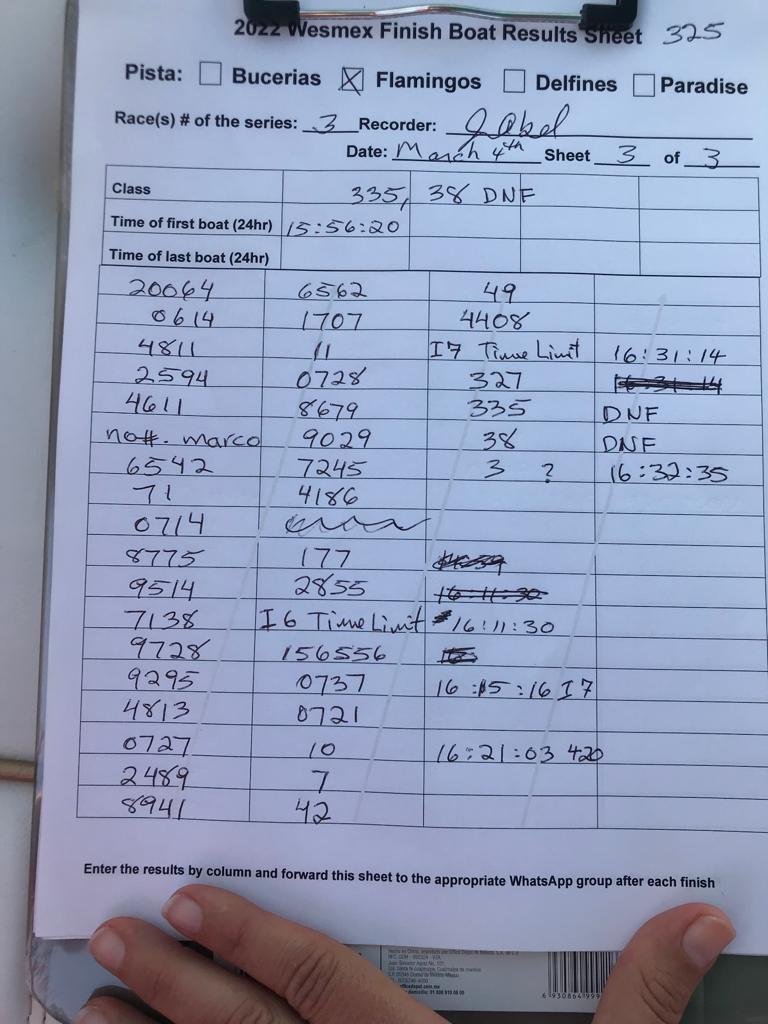 2022 Wesmex Finish Boat Results Sheet 325
Pista: Bucerias Flamingos Delfines Paradise
Race(s) # of the series: 3 Recorder:
Date: March 4th Sheet 3 of 3
Class 335, 38 DNF
Time of first boat (24hr) 15:56:20
Time of last boat (24hr)
20064 6562 49
0614 1707 4408
4811 11 I7 Time Limit 16:31:14
2594 0728 327
4611 8679 335 DNF
no#. marco 9029 38 DNF
6542 7245 3 ? 16:32:35
71 4186
0714
8775 177
9514 2855
7138 I6 Time Limit 16:11:30
9728 156556
9295 0737 16:15:16 I7
4813 0721
0727 10 16:21:03 420
2489 7
8941 42
Enter the results by column and forward this sheet to the appropriate WhatsApp group after each finish